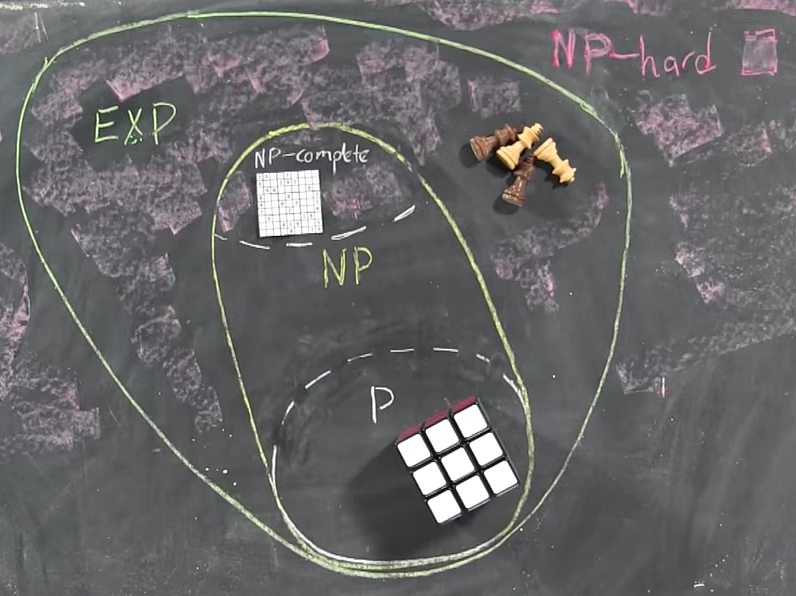 NP-hard
EXP
NP-complete
NP
P